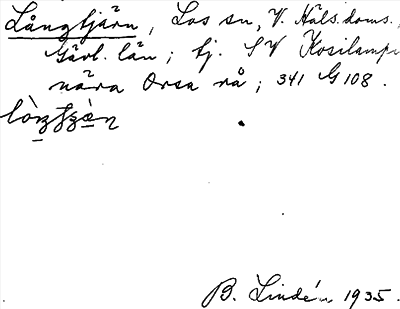 Långtjärn, Los sn, V. Häls. doms.,
Gävl. län; tj. SV Kosilampi
nära Orsa rå; 341 G 108.
B. Lindén 1935.